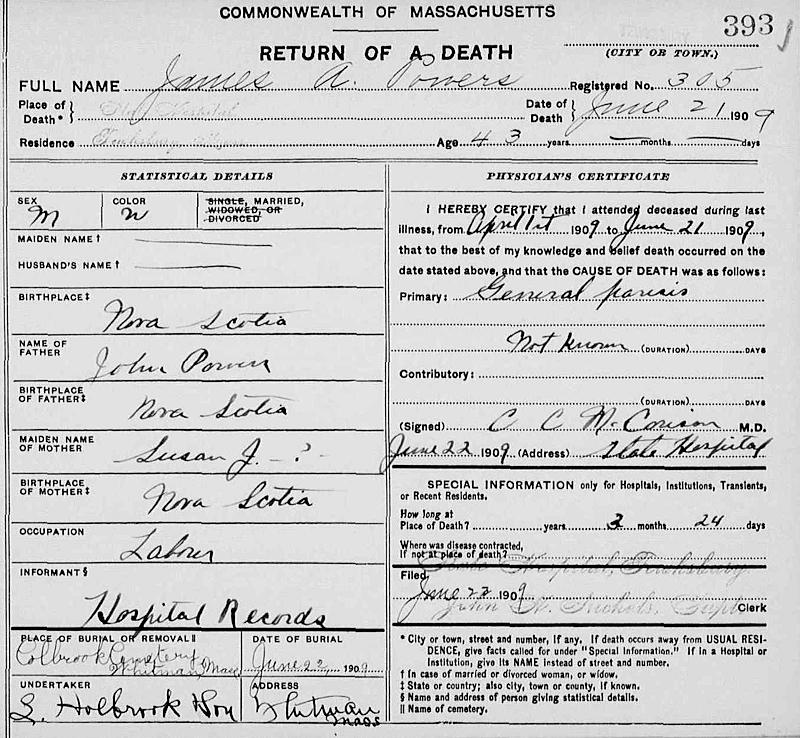 COMMONWEALTH OF MASSACHUSETTS
393
RETURN OF A DEATH
(CITY OR TOWN.)
FULL NAME James A. Powers Registered No. 305
Place of Death* State Hospital Date of Death June 21 1909
Residence Tewksbury Age 43 years — months — days
STATISTICAL DETAILS
SEX M
COLOR W
SINGLE, MARRIED, WIDOWED, OR DIVORCED
MAIDEN NAME †
HUSBAND'S NAME †
BIRTHPLACE ‡
Nova Scotia
NAME OF FATHER
John Powers
BIRTHPLACE OF FATHER ‡
Nova Scotia
MAIDEN NAME OF MOTHER
Susan J. - ? -
BIRTHPLACE OF MOTHER ‡
Nova Scotia
OCCUPATION
Laborer
INFORMANT §
Hospital Records
PLACE OF BURIAL OR REMOVAL ||
Colbrook Cemetery
Whitman Mass
DATE OF BURIAL
June 22 1909
UNDERTAKER
S. Holbrook & Son
ADDRESS
Whitman
Mass
PHYSICIAN'S CERTIFICATE
I HEREBY CERTIFY that I attended deceased during last
illness, from April 1st 1909 to June 21 1909,
that to the best of my knowledge and belief death occurred on
date stated above, and that the CAUSE OF DEATH was as follows:
Primary: General paresis
Not known (DURATION) DAYS
Contributory:
(DURATION) DAYS
(Signed) C C McCorison M.D.
June 22 1909 (Address) State Hospital
SPECIAL INFORMATION only for Hospitals, Institutions, Transients,
or Recent Residents.
How long at
Place of Death? years 2 months 24 days
Where was disease contracted,
If not at place of death?
State Hospital, Tewksbury
Filed,
June 22 1909
John H. Nichols, Supt. Clerk
* City or town, street and number, if any. If death occurs away from USUAL RESI-
DENCE, give facts called for under "Special Information." If in a Hospital or
Institution, give its NAME instead of street and number.
† In case of married or divorced woman, or widow.
‡ State or country; also city, town or county, if known.
§ Name and address of person giving statistical details.
|| Name of cemetery.